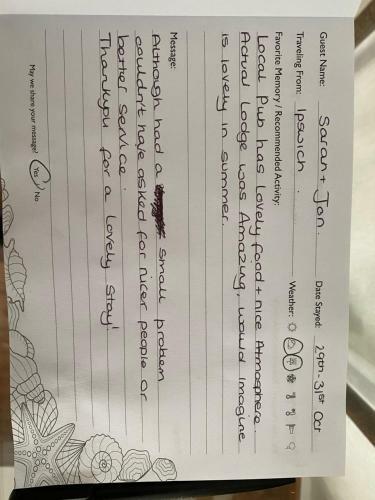 Guest Name: Sarah + Jon. Date Stayed: 29th - 31st Oct
Traveling From: Ipswich. Weather:
Favorite Memory / Recommended Activity:
Local Pub has lovely food + nice Atmosphere.
Actual Lodge was Amazing, would Imagine
is lovely in summer.
Message:
Although had a small problem
couldn't have asked for nicer people or
better service.
Thankyou for a lovely stay!
May we share your message? Yes / No